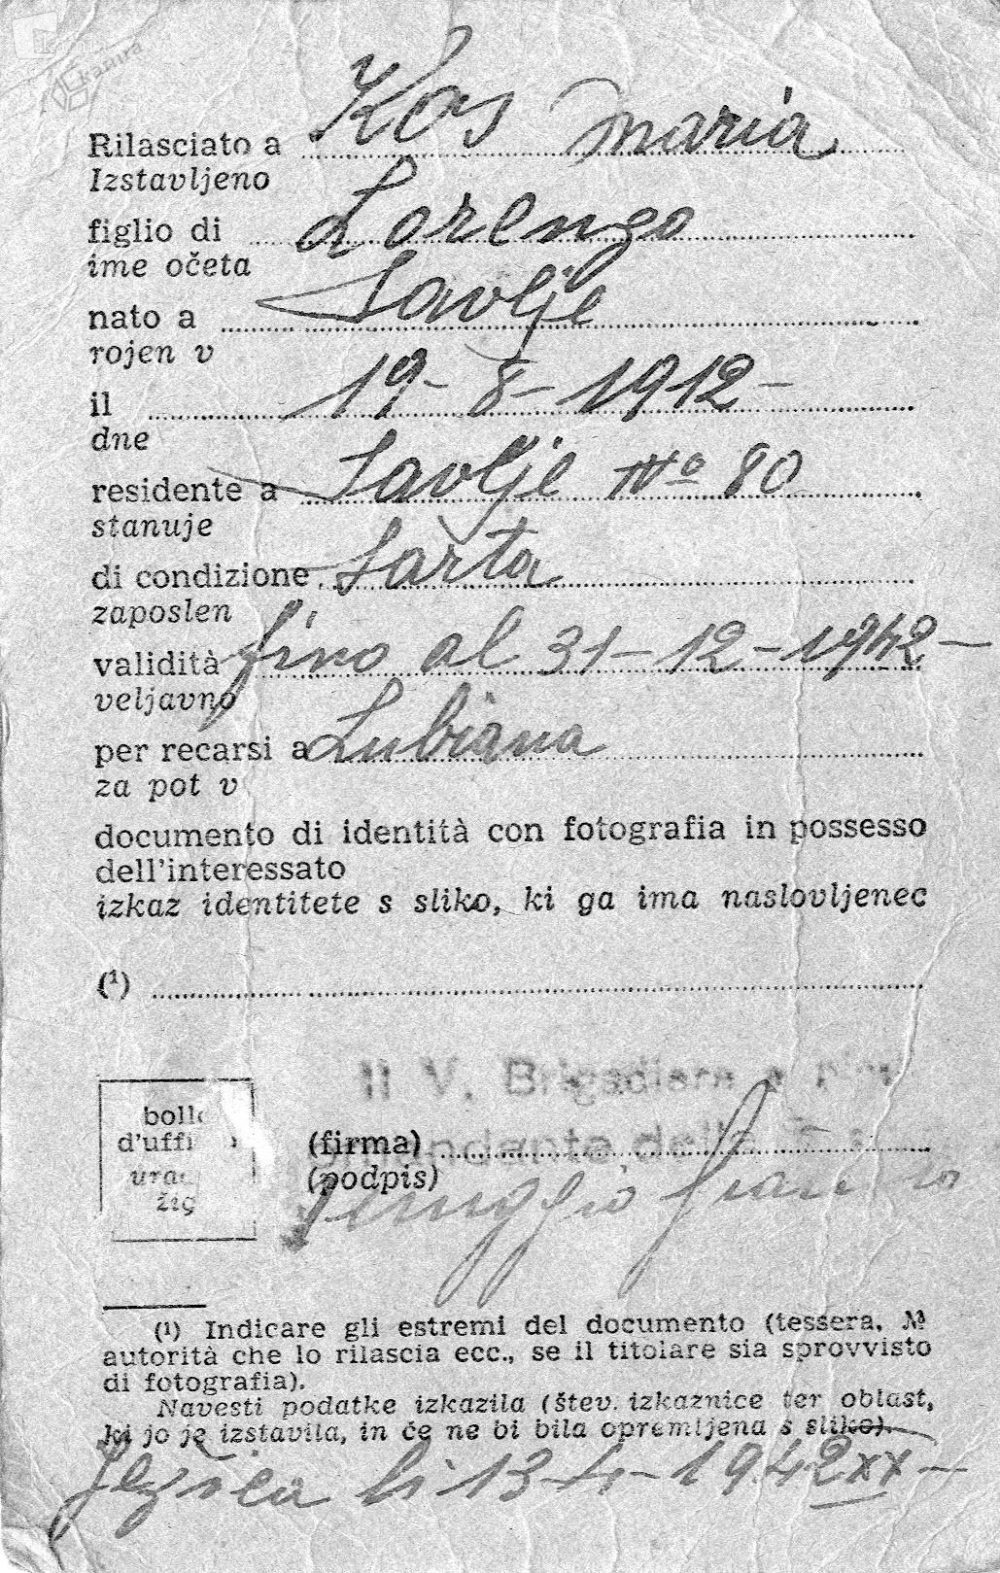 kamra
Rilasciato a Kos Maria
Izstavljeno
figlio di Lorenzo
ime očeta
nato a Savlje
rojen v
il 19-8-1912-
dne
residente a Savlje No 80
stanuje
di condizione Sarta
zaposlen
validità fino al 31-12-1942-
veljavno
per recarsi a Lubiana
za pot v
documento di identità con fotografia in possesso
dell'interessato
izkaz identitete s sliko, ki ga ima naslovljenec
(1)
Il V. Brigadiere a
bollo
d'uffi
(firma)
della
urad
(podpis)
žig
(1) Indicare gli estremi del documento (tessera, №
autorità che lo rilascia ecc., se il titolare sia sprovvisto
di fotografia).
Navesti podatke izkazila (štev. izkaznice ter oblast,
ki jo je izstavila, in če ne bi bila opremljena s sliko).
Ježica li 13-4-1942 XX-